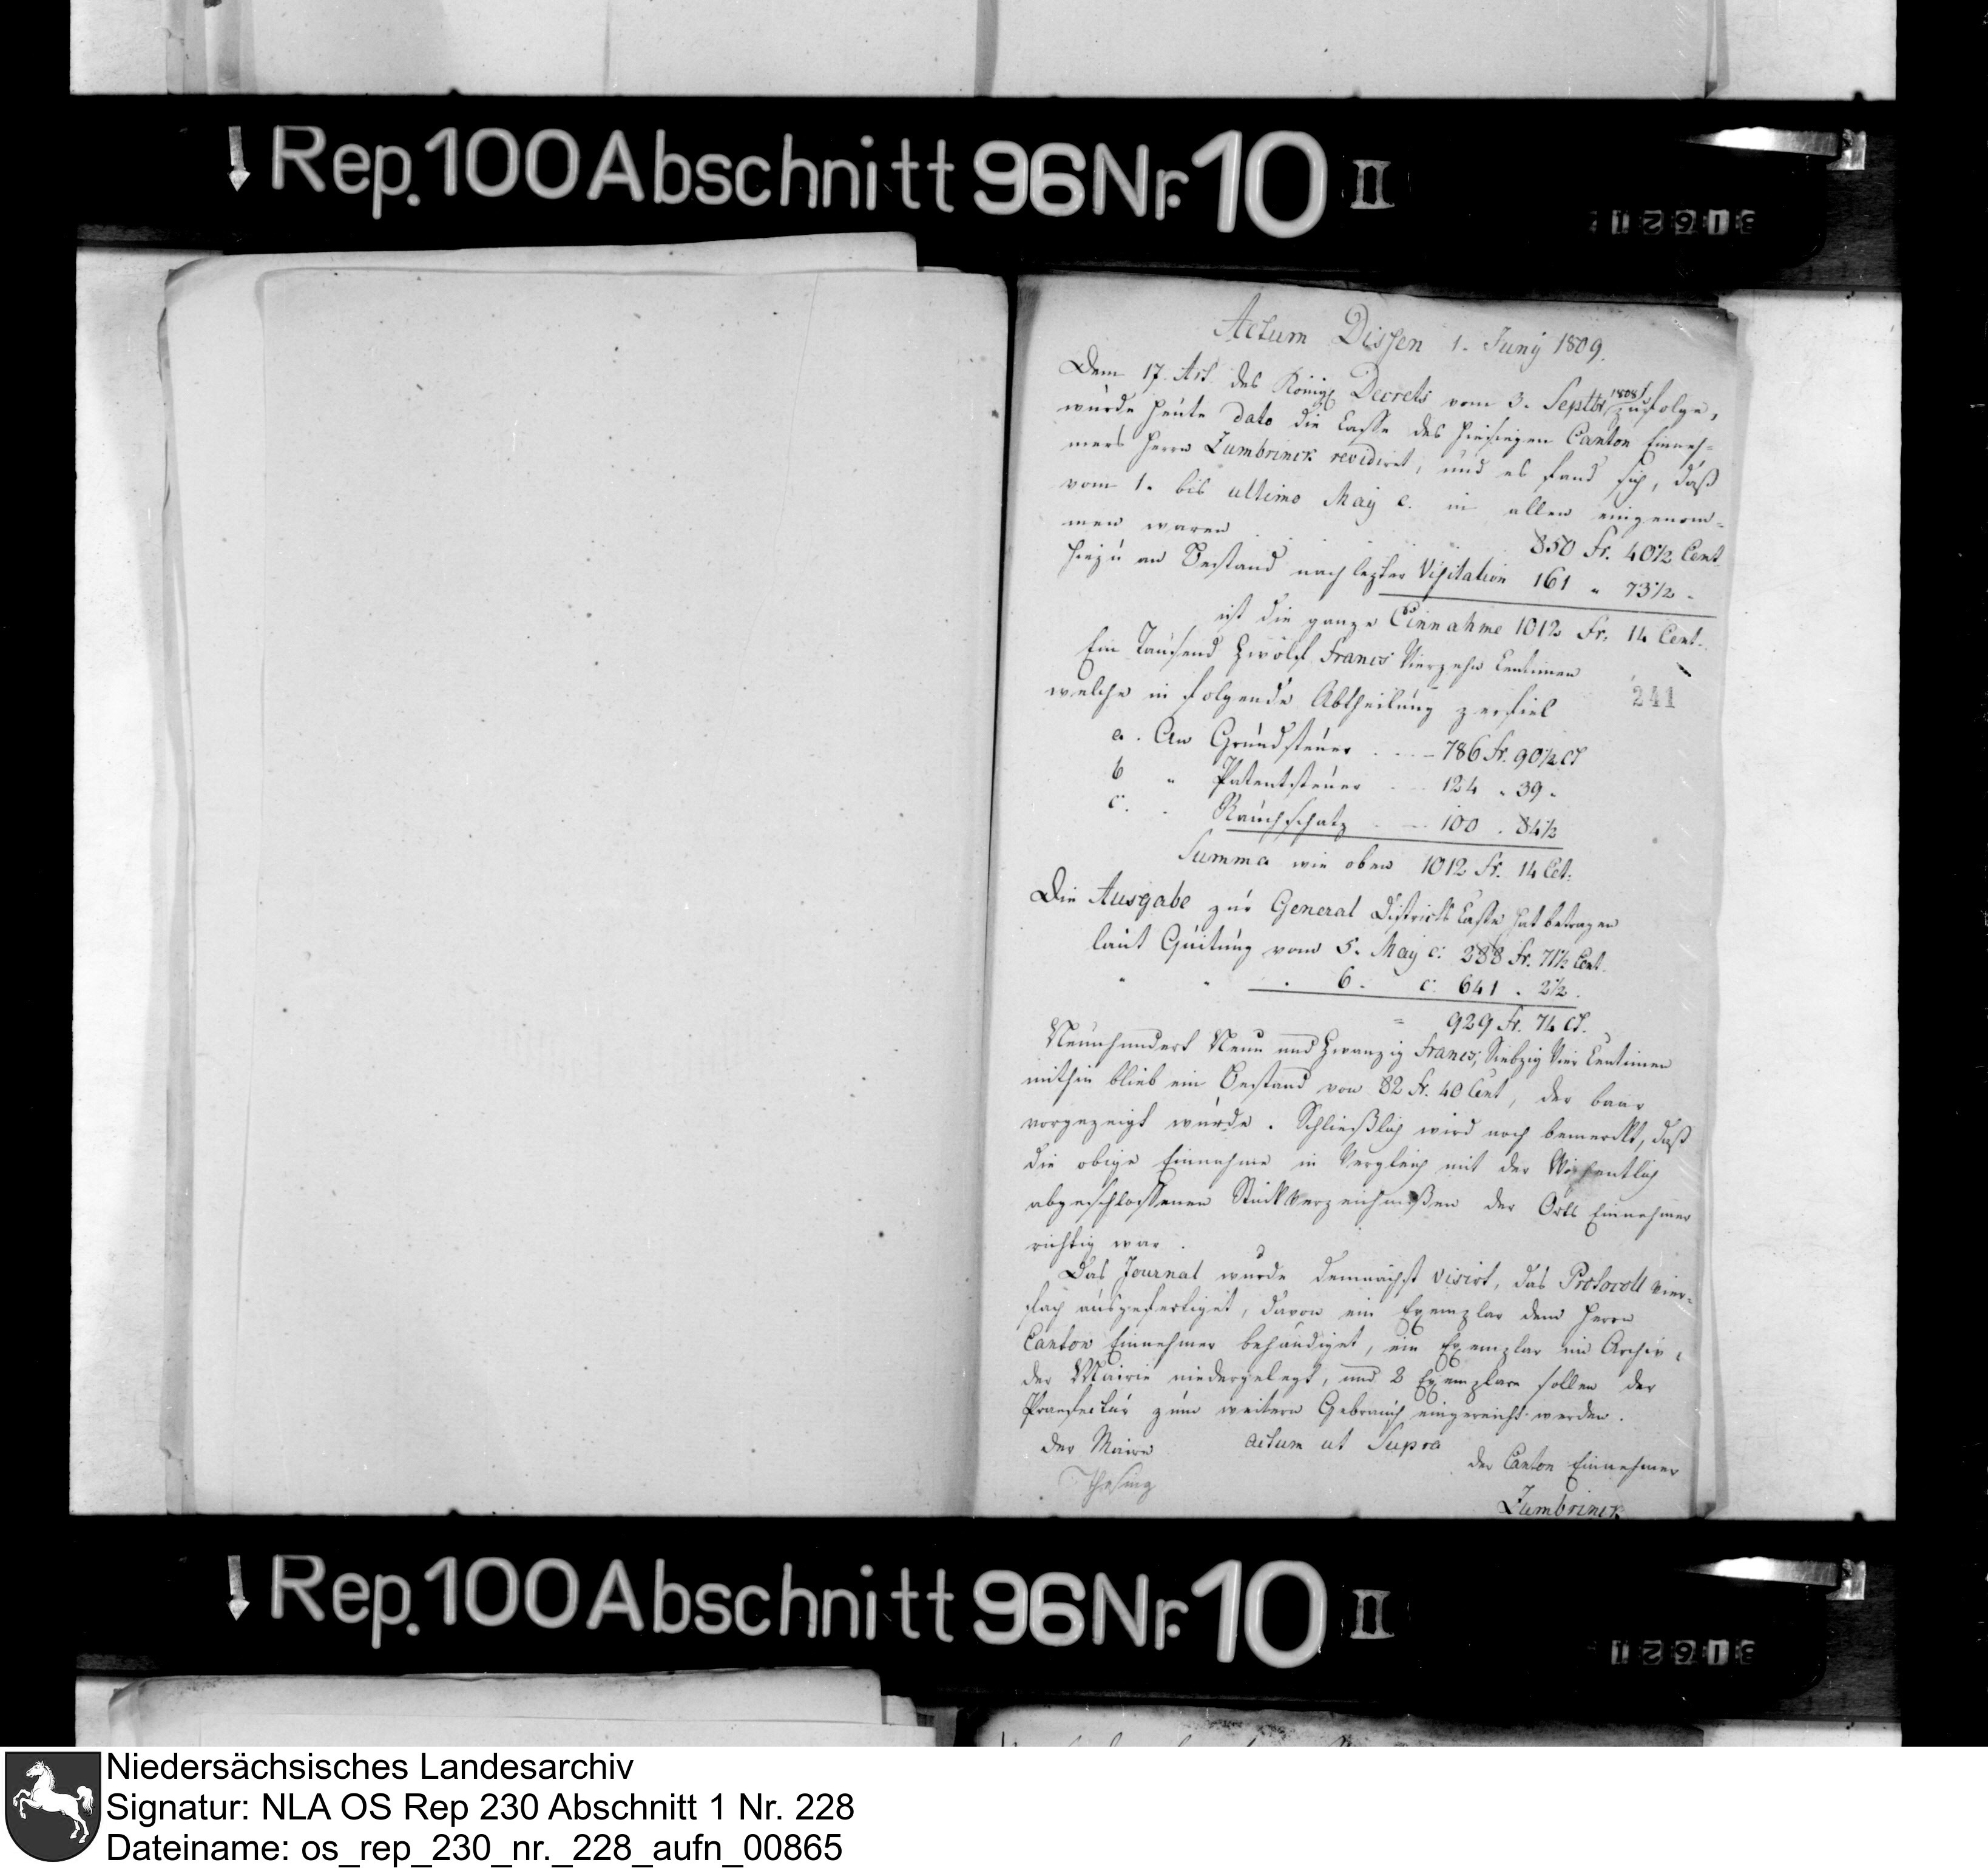 Rep. 100 Abschnitt 96 Nr. 10 II
31621
Actum Dissen 1. Juny 1809.
Dem 17. Art. des Königl Decrets vom 3. Septbr 1808 zufolge,
wurde heute dato die Casse des hiesigen Canton Einneh-
mers Herrn Zumbrinck revidirt, und es fand sich, daß
vom 1. bis ultimo May c. in allen eingenom-
men waren 850 Fr. 40½ Cent
hiezu an Bestand nach lezter Visitation 161 " 73½ "
ist die ganze Einnahme 1012 Fr. 14 Cent.
Ein Tausend Zwölf Francs Vierzehn Centimen
241
welche in folgende Abtheilung zerfiel
a. An Grundsteuer 786 Fr. 90½ Ct
b " Patentsteuer 124 " 39 "
c. " Rauchschatz 100 " 84½
Summa wie oben 1012 Fr. 14 Cet.
Die Ausgabe zur General Districts Casse hat betragen
laut Quitung vom 5. May c. 288 Fr. 71½ Cent.
" " " 6. c. 641 " 2½ "
= 929 Fr. 74 Ct.
Neunhundert Neun und Zwanzig Francs, Siebzig Vier Centimen
mithin blieb ein Bestand von 82 Fr. 40 Cent, der baar
vorgezeigt wurde. Schließlich wird noch bemerckt, daß
die obige Einnahme in Vergleich mit der Wöchentlich
abgeschlossenen Stückverzeichnißen der Orts Einnehmer
richtig war.
Das Journal wurde demnächst visirt, das Protocoll vier-
fach ausgefertiget, davon ein Exemplar dem Herrn
Canton Einnehmer behändiget, ein Exemplar im Archiv
der Mairie niedergelegt, und 2 Exemplare sollen der
Praefectur zum weitern Gebrauch eingereicht werden.
Actum ut Supra
der Maire
der Canton Einnehmer
Zumbrinck
Rep. 100 Abschnitt 96 Nr. 10 II
31621
Niedersächsisches Landesarchiv
Signatur: NLA OS Rep 230 Abschnitt 1 Nr. 228
Dateiname: os_rep_230_nr._228_aufn_00865